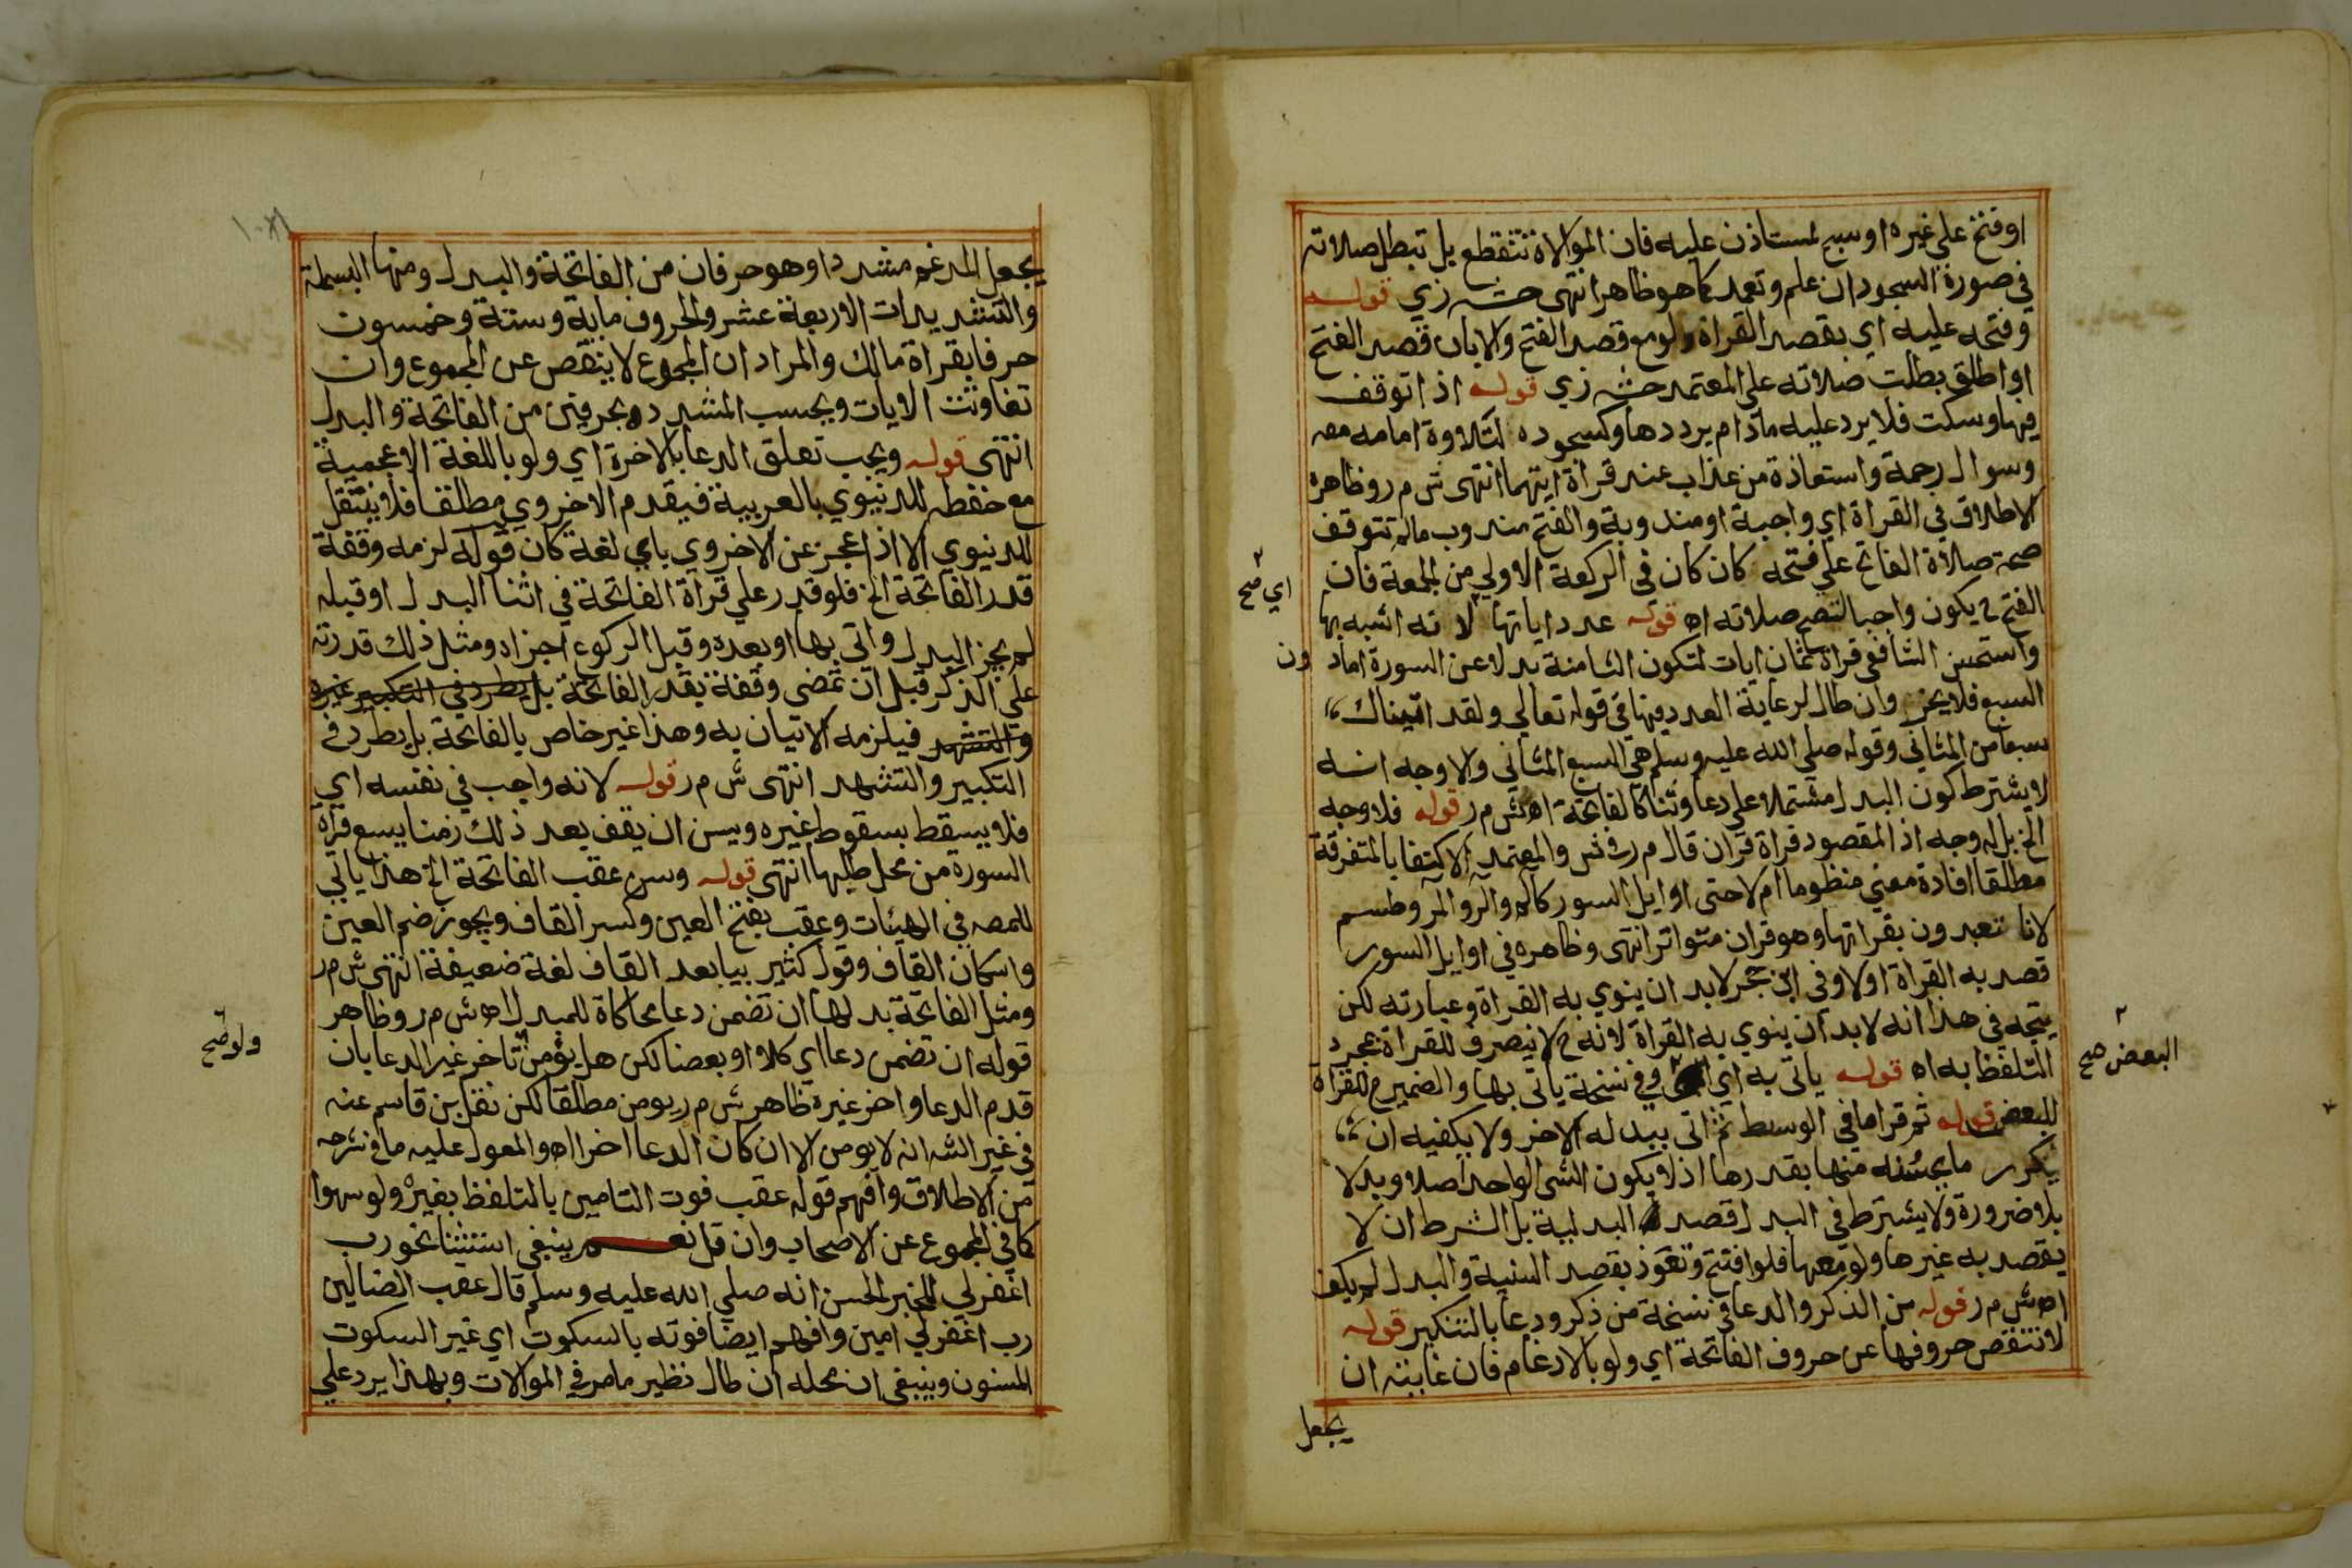 او فتح علي غيره او سبح لمستاذن عليه فان الموالاة تنقطع بل تبطل صلاته
في صورة السجود ان علم وتعمد كما هو ظاهر انتهى حش زي قوله
وفتحه عليه اي بقصد القراة ولو مع قصد الفتح والا بان قصد الفتح
او اطلق بطلت صلاته علي المعتمد حش زي قوله اذا توقف
فيها وسكت فلا يرد عليه مادام يرددها وكسجوده لتلاوة امامه معه
وسوال رحمة واستعاذة من عذاب عند قراة ايتهما انتهى ش م ر وظاهره
الاطلاق في القراة اي واجبة او مندوبة والفتح مندوب مالم تتوقف
صحة صلاة الفاتح علي فتحه كان كان في الركعة الاولي من الجمعة فان
اي صح
الفتح ح يكون واجبا لتصح صلاته اه قوله عدد اياتها لانه اشبه بها
واستحسن الشافعي قراة ثمان ايات لتكون الثامنة بدلا عن السورة اما دون
السبع فلا يجزي وان طال لرعاية العدد فيها في قوله تعالي ولقد اتيناك
سبعا من المثاني وقوله صلي الله عليه وسلم هي السبع المثاني والاوجه انه
لا يشترط كون البدل مشتملا علي دعا وثنا كالفاتحة اه ش م ر قوله فلا وجه
الخ بل له وجه اذ المقصود قراة قران قال م ر في ش والمعتمد الاكتفا بالمتفرقة
مطلقا افادة معني منظوما ام لا حتى اوايل السور كالم والر والمر وطسم
لانا تعبدون بقراتها وهو قران متواتر انتهى وظاهره في اوايل السور
قصد به القراة اولا وفي ابن حجر لابد ان ينوي به القراة وعبارته لكن
يتجه في هذا انه لابد ان ينوي به القراة لانه ح لا ينصرف للقراة بمجرد
التلفظ به اه قوله ياتي به اي وفي نسخة ياتي بها والضمير ح للقراة
البعض صح
للبعض قوله ثم قرا ما في الوسط ثم اتى ببدله الاخر ولا يكفيه ان
يكرر ما يحسنه منها بقدرها اذ لا يكون الشي الواحد اصلا وبدلا
بلا ضرورة ولا يشترط في البدل قصد البدلية بل الشرط ان لا
يقصد به غيرها ولو معها فلو افتتح وتعوذ بقصد السنية والبدل لم يكف
اه ش م ر قوله من الذكر والدعا في نسخة من ذكر ودعا بالتنكير قوله
لا تنقص حروفها عن حروف الفاتحة اي ولو بالادغام فان غايته ان
يجعل
يجعل المدغم مشددا وهو حرفان من الفاتحة والبدل ومنها البسملة
والتشديدات الاربعة عشر والحروف ماية وستة وخمسون
حرفا بقراة مالك والمراد ان المجموع لا ينقص عن المجموع وان
تفاوتت الايات ويحسب المشدد بحرفين من الفاتحة والبدل
انتهى قوله ويجب تعلق الدعا بالاخرة اي ولو باللغة الاعجمية
مع حفظه للدنيوي بالعربية فيقدم الاخروي مطلقا فلا ينتقل
للدنيوي الا اذا عجز عن الاخروي باي لغة كان قوله لزمه وقفة
قدر الفاتحة الخ فلو قدر علي قراة الفاتحة في اثنا البدل او قبله
لم يجز البدل واتى بها او بعده وقبل الركوع اجزاه ومثل ذلك قدرته
علي الذكر قبل ان تمضى وقفة بقدر الفاتحة بل يطرد في التكبير غيره
والتشهد فيلزمه الاتيان به وهذا غير خاص بالفاتحة بل يطرد في
التكبير والتشهد انتهى ش م ر قوله لانه واجب في نفسه اي
فلا يسقط بسقوط غيره ويسن ان يقف بعد ذلك زمنا يسع قراة
السورة من محل طلبها انتهى قوله وسن عقب الفاتحة الخ هذا ياتي
للمصه في الهيئات وعقب بفتح العين وكسر القاف ويجوز ضم العين
واسكان القاف وقول كثير بيا بعد القاف لغة ضعيفة انتهى ش م ر
ومثل الفاتحة بدلها ان تضمن دعا محاكاة للمبدل اه ش م ر وظاهر
ولو صح
قوله ان تضمن دعا اي كلا او بعضا لكن هل يؤمن تاخر غير الدعا بان
قدم الدعا واخر غيره ظاهر ش م ر يومن مطلقا لكن نقل بن قاسم عنه
في غير الشه انه لا يومن الا ان كان الدعا اخرا اه والمعول عليه ما في شرحه
من الاطلاق وافهم قوله عقب فوت التامين بالتلفظ بغيره ولو سهوا
كما في المجموع عن الاصحاب وان قل نعم ينبغي استثنا نحو رب
اغفرلي للخبر الحسن انه صلي الله عليه وسلم قال عقب الضالين
رب اغفرلي امين وافهم ايضا فوته بالسكوت اي غير السكوت
المسنون وينبغي ان محله ان طال نظير ما مر في الموالات وبهذا يرد علي